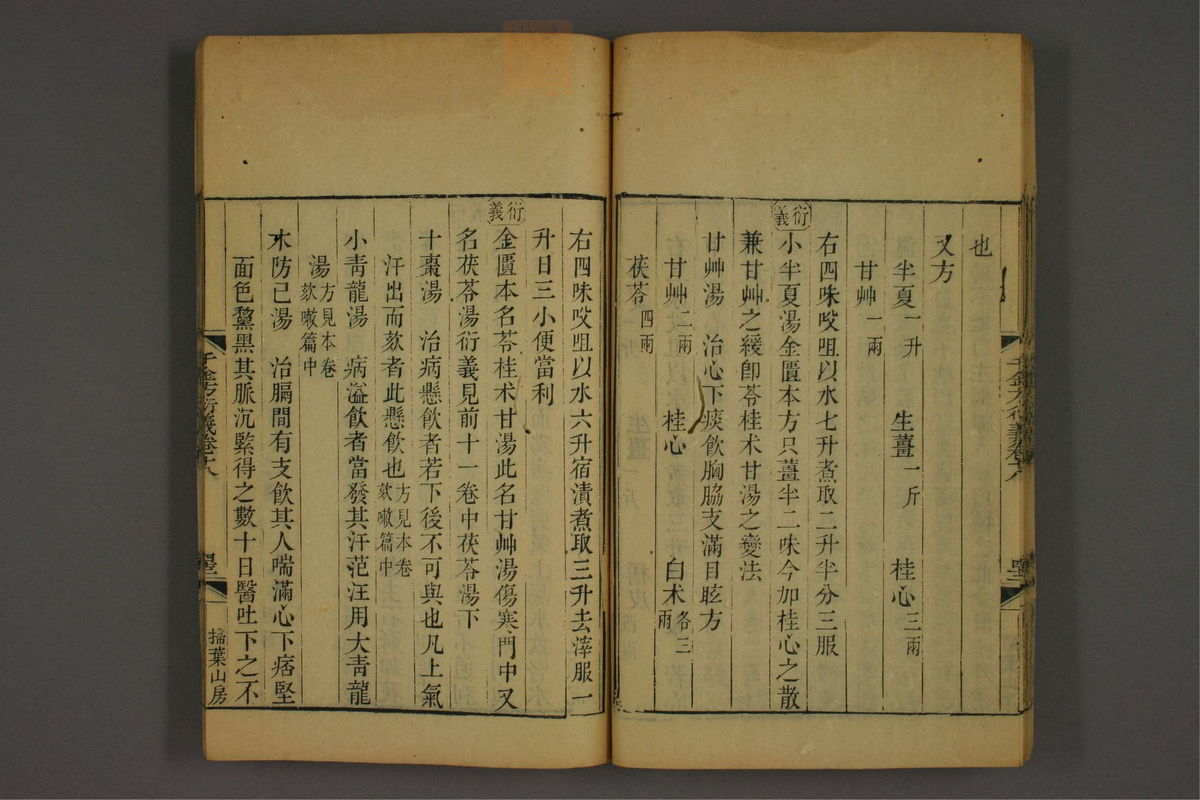 也
又方
半夏一升 生薑一斤 桂心三兩
甘艸一兩
右四味㕮咀以水七升煮取二升半分三服
衍義
小半夏湯金匱本方只薑半二味今加桂心之散
兼甘艸之緩卽苓桂术甘湯之變法
甘艸湯 治心下痰飮胸脇支滿目眩方
甘艸二兩 桂心 白术各三兩
茯苓四兩
右四味㕮咀以水六升宿漬煮取三升去滓服一
升日三小便當利
衍義
金匱本名苓桂术甘湯此名甘艸湯傷寒門中又
名茯苓湯衍義見前十一卷中茯苓湯下
十棗湯 治病懸飮者若下後不可與也凡上氣
汗出而欬者此懸飮也方見本卷欬嗽篇中
小青龍湯 病溢飮者當發其汗范汪用大青龍
湯方見本卷欬嗽篇中
木防己湯 治膈間有支飮其人喘滿心下痞堅
面色黧黑其脈沉緊得之數十日醫吐下之不
千金方衍義卷十八
掃葉山房